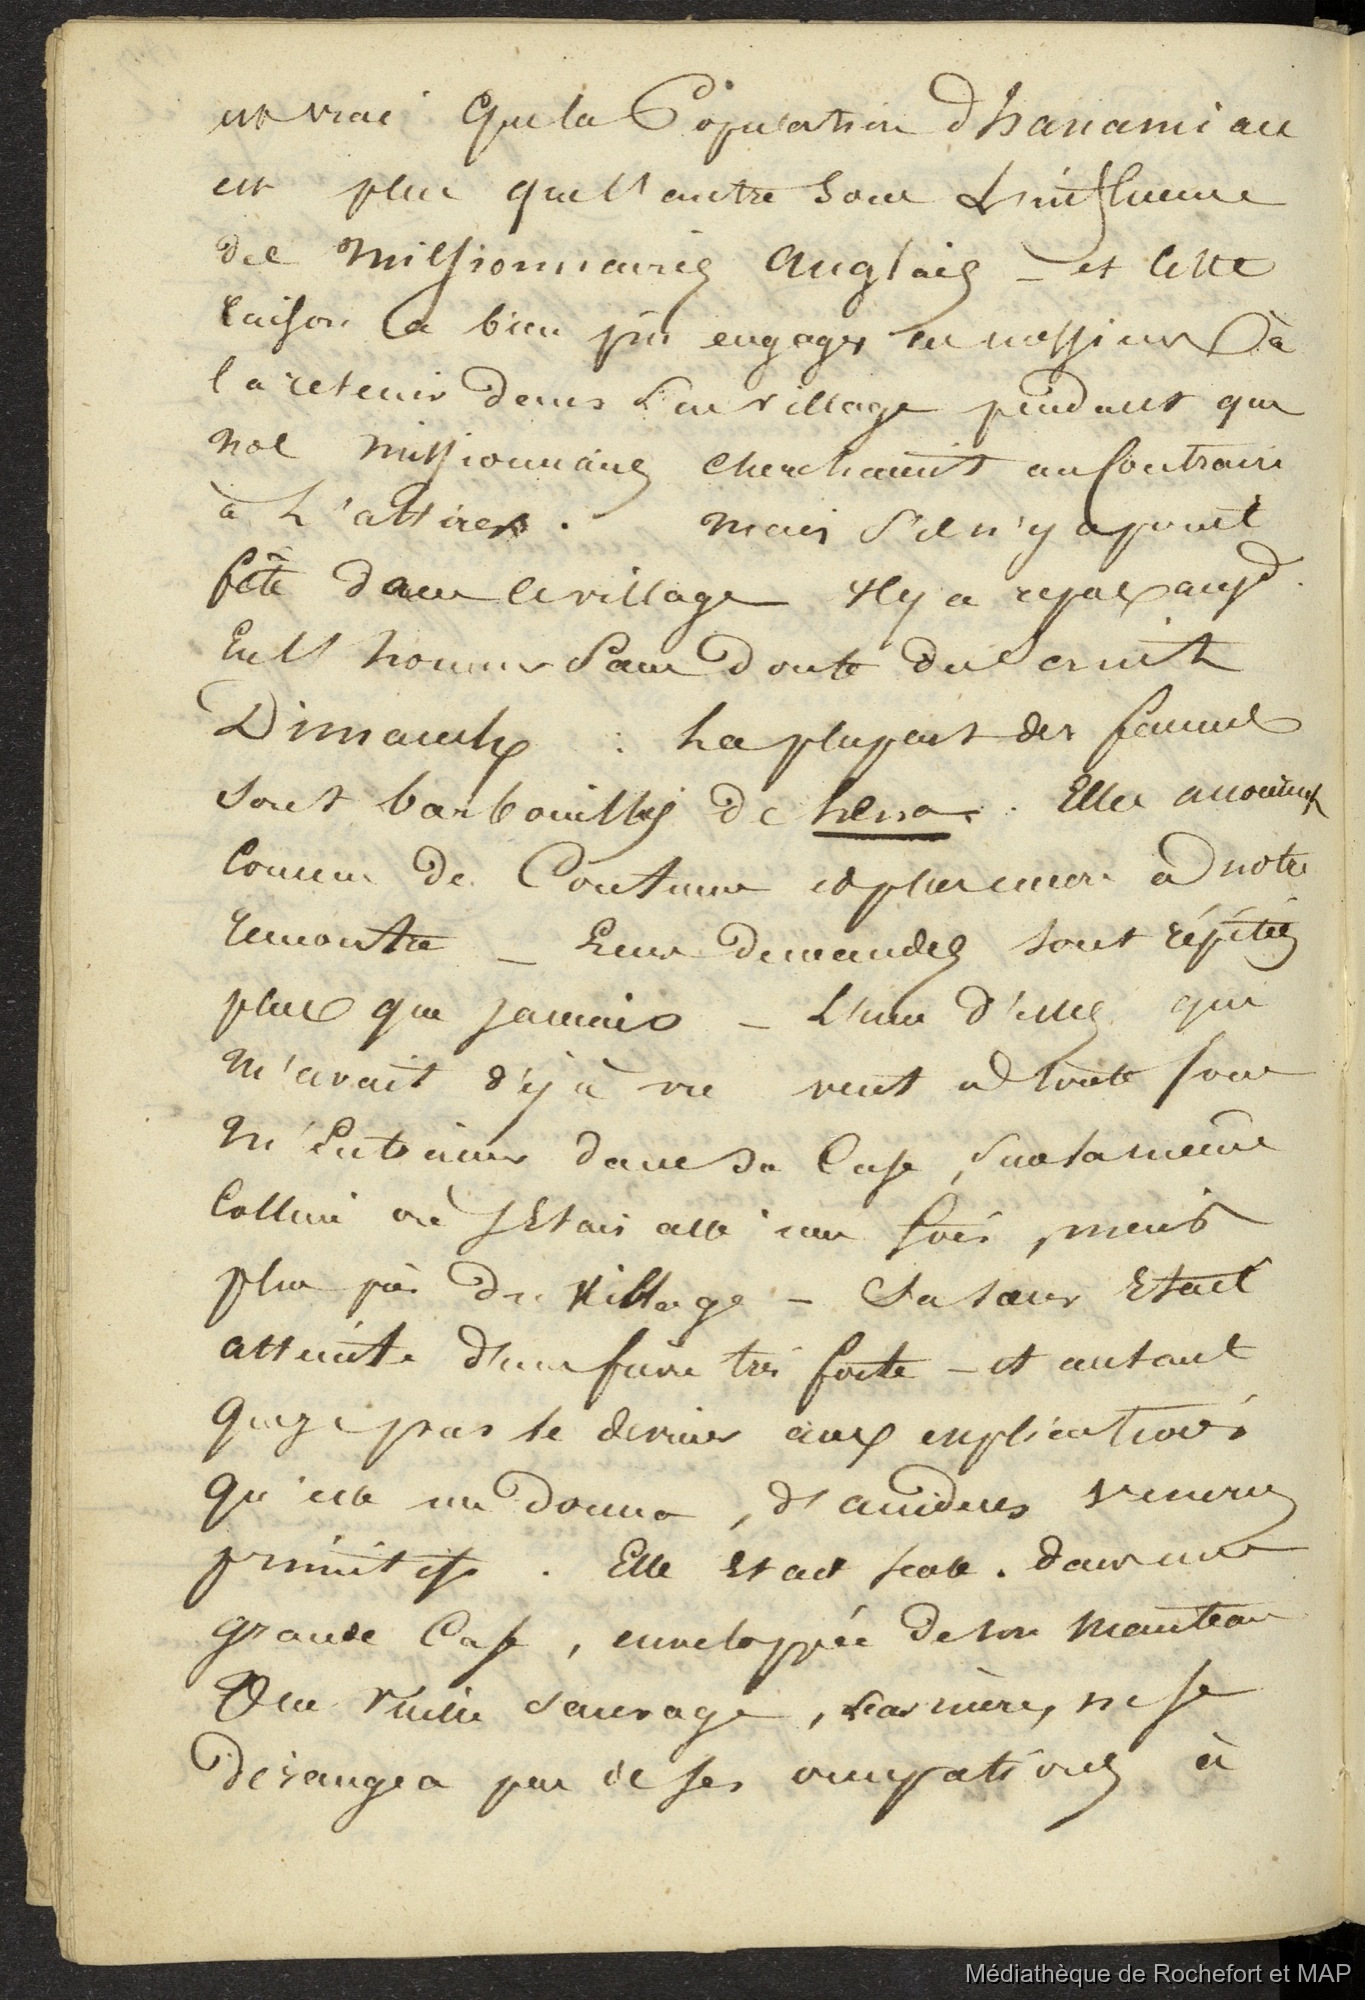 est vrai que la Population d'hanamiau
est plus que l'autre sous L'influence
des Missionnaires Anglais – et Cette
raison a bien pu engager ces messieurs à
la retenir dans Leur village pendant que
nos missionnaires cherchaient au Contraire
à L'attirer. Mais S'il n'y a point
fête dans le village il y a repos aujd
En l'honneur Sans Doute du Saint
Dimanche : La plupart des femmes
sont barbouillées de lena. Elles accourent
Comme de Coutume et plus encore à notre
rencontre – Leurs Demandes sont répétées
plus que jamais – L'une d'elles qui
m'avait déjà vu veut à toute force
m'Entrainer dans sa Case, sur la même
Colline où J'Etais allé une fois, mais
plus près du Village – Sa sœur Etait
atteinte d'une fièvre très forte – et autant
que je pus le deviner aux explications
qu'elle me donna, d'accidents
primitifs. Elle Etait seule. dans une
grande Case, enveloppée de son Manteau
Une vieille Sauvage, sa mère, ne se
derangea pas de ses occupations à
Médiathèque de Rochefort et MAP